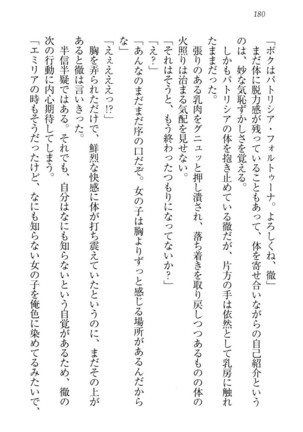 180
「ボクはパトリシア・フォルトゥーナ。よろしくね、徹」
まだ体に脱力感が残っていることもあって、体を寄せ合いながらの自己紹介という
のは、妙な気恥ずかしさを覚える。
しかもパトリシアの体を抱き止めている徹だが、片方の手は依然として乳房に触れ
たままだった。
張りのある乳肉をグニュッと押し潰され、落ち着きを取り戻しつつあるものの体の
火照りは治まる気配を見せない。
「それはそうと、もう終わったつもりになってないか？」
「え？」
「あんなのまだまだ序の口だぞ。女の子は胸よりずっと感じる場所があるんだから
な」
「えぇえええっ!?」
胸を弄られただけで、鮮烈な快感に体が打ち震えていたというのに、まだその上が
あると徹は言いきった。
半信半疑ではある。それでも、自分はなにも知らないという自覚があるため、徹の
次の行動に内心期待してしまう。
「エミリアの時もそうだったけど、なにも知らない女の子を俺色に染めてるみたいで、